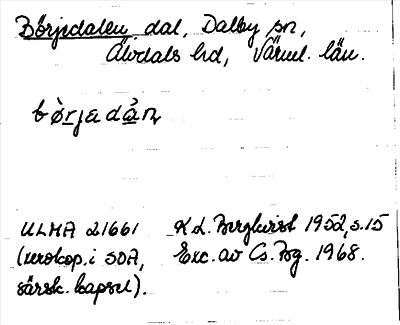 Börjedalen, dal, Dalby sn,
Älvdals hd, Värml. län.
bø̀rjadån
ULMA 21661 K.L. Berglund 1952, s. 15
(mrokop. i SOA, Exc. av Cs. Bg. 1968.
särsk. kapsel).